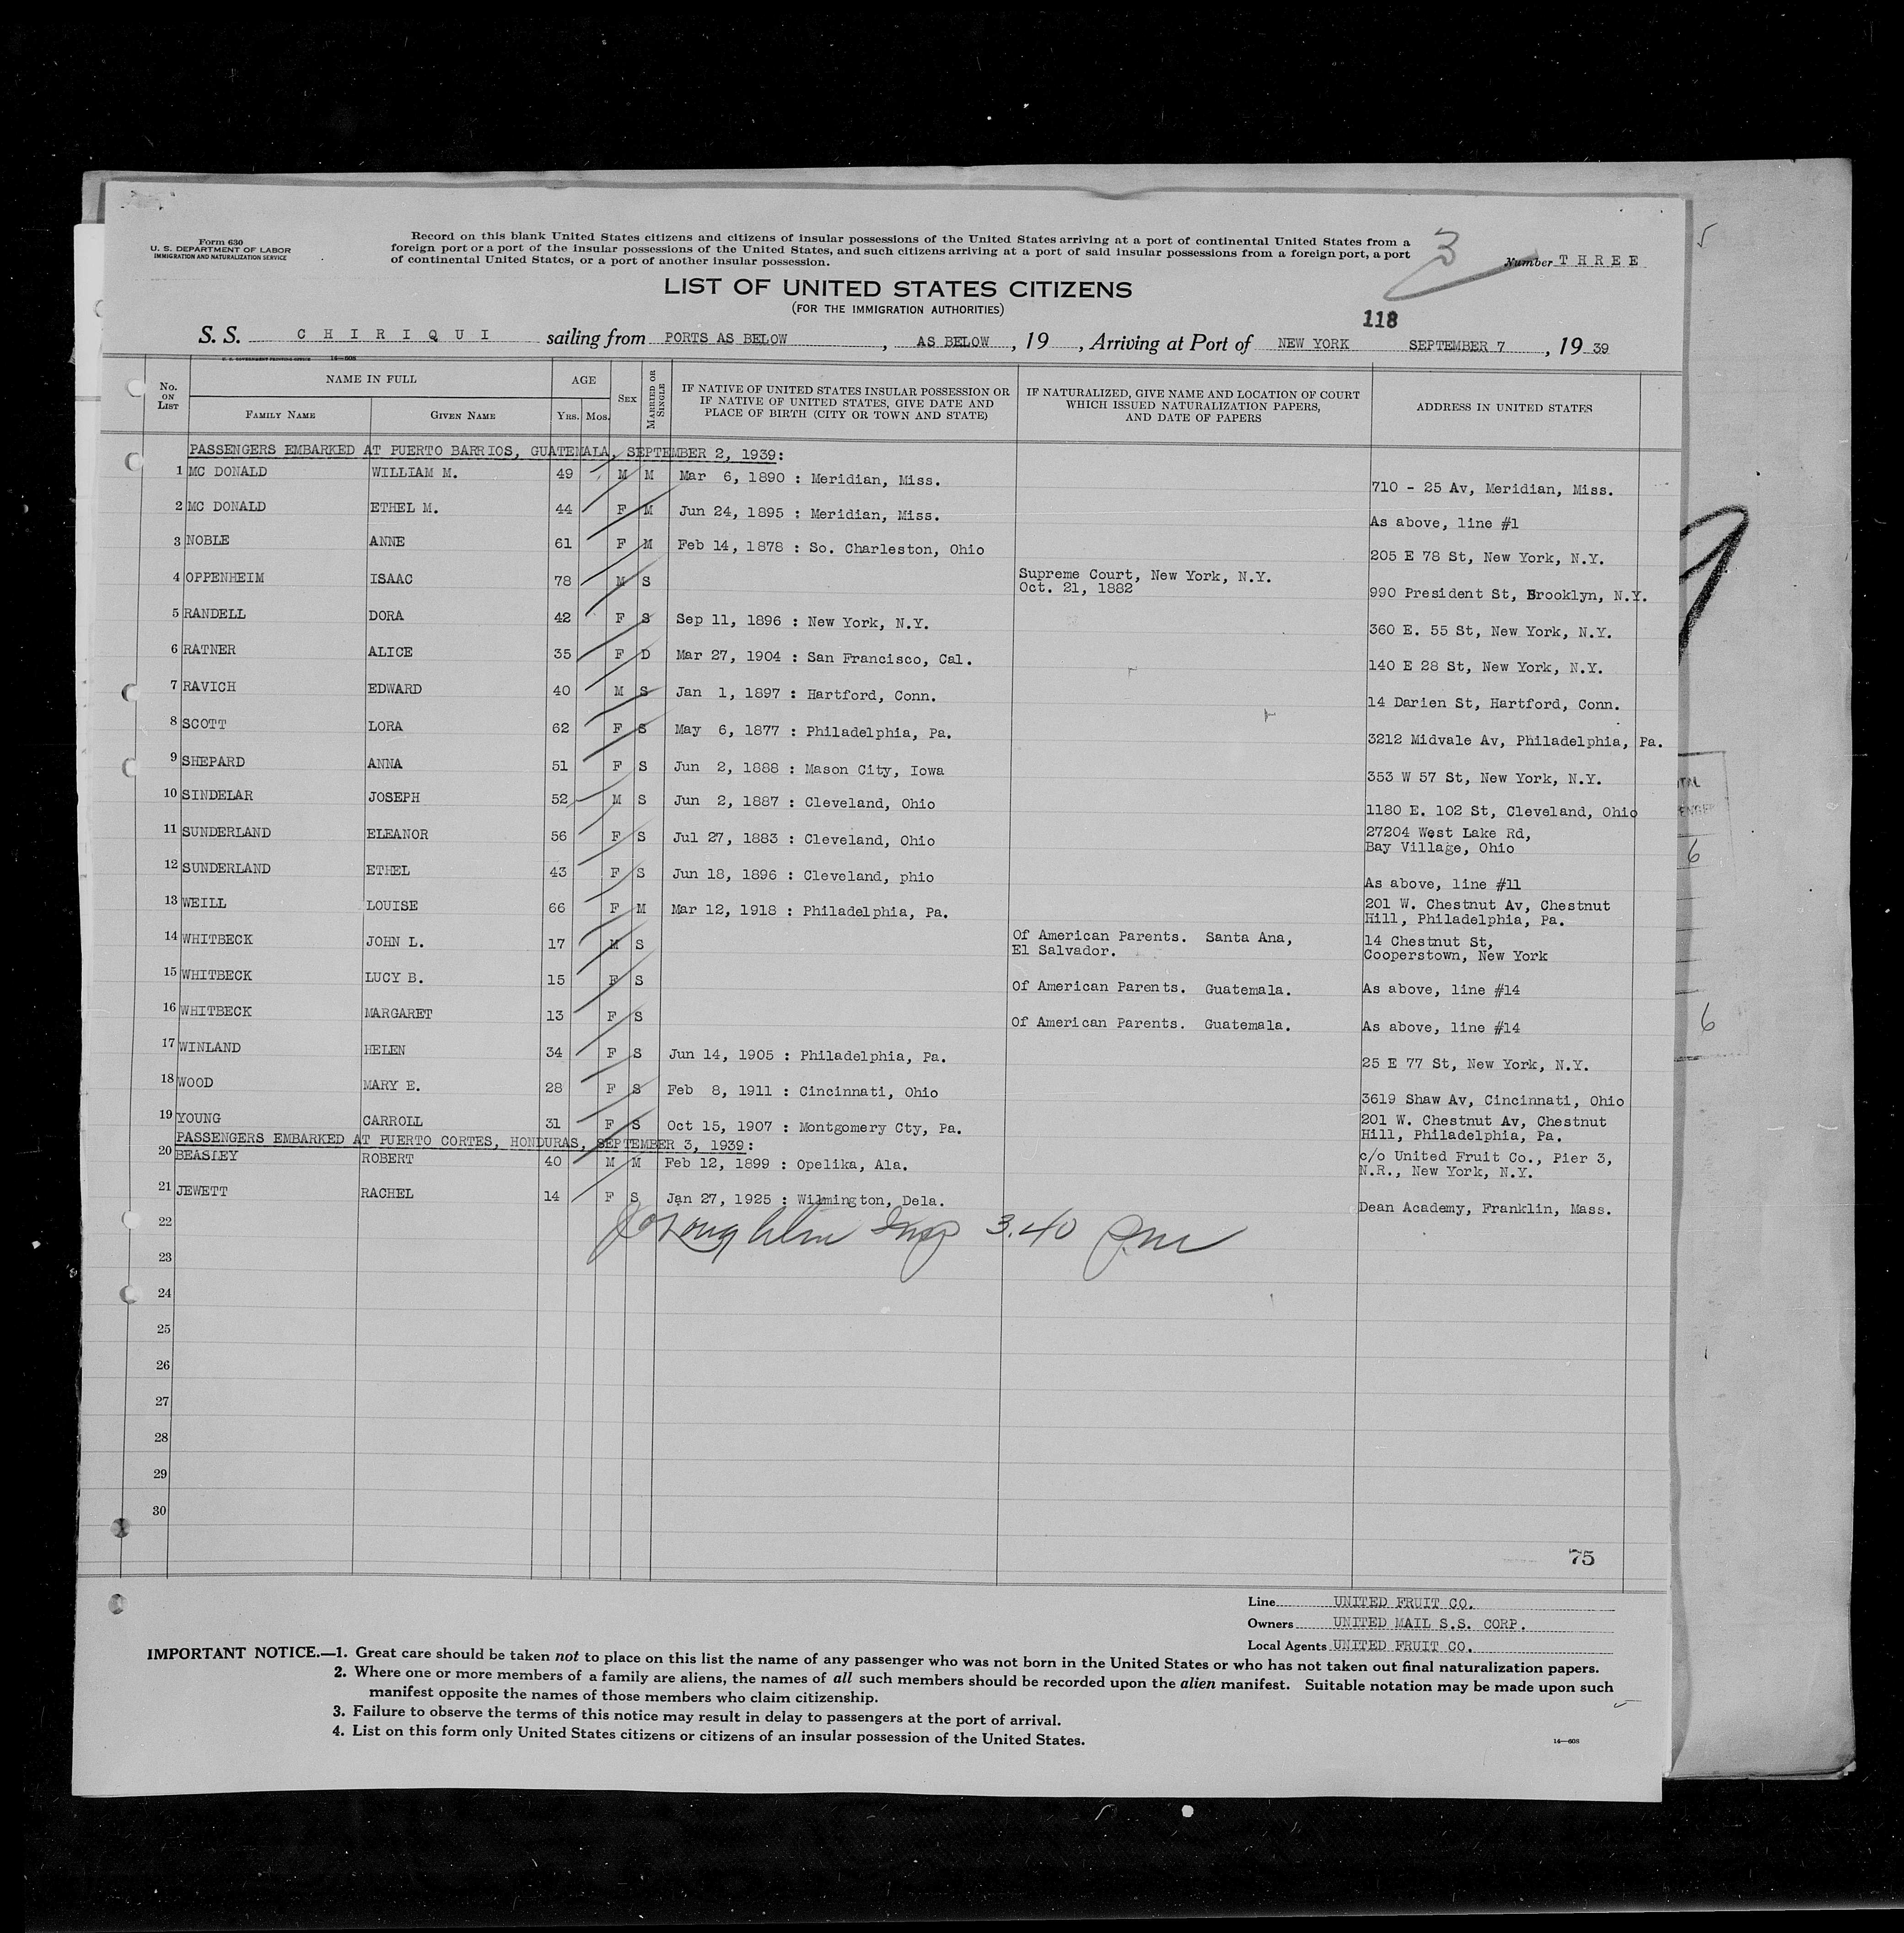 Form 630
U. S. DEPARTMENT OF LABOR
IMMIGRATION AND NATURALIZATION SERVICE
Record on this blank United States citizens and citizens of insular possessions of the United States arriving at a port of continental United States from a
foreign port or a port of the insular possessions of the United States, and such citizens arriving at a port of said insular possessions from a foreign port, a port
of continental United States, or a port of another insular possession.
3
Number THREE
LIST OF UNITED STATES CITIZENS
(FOR THE IMMIGRATION AUTHORITIES)
118
S. S. CHIRIQUI sailing from PORTS AS BELOW, AS BELOW, 19 , Arriving at Port of NEW YORK SEPTEMBER 7, 19 39
U. S. GOVERNMENT PRINTING OFFICE 14—608
No. ON LIST
NAME IN FULL
FAMILY NAME
GIVEN NAME
AGE
YRS. MOS.
SEX
MARRIED OR SINGLE
IF NATIVE OF UNITED STATES INSULAR POSSESSION OR
IF NATIVE OF UNITED STATES, GIVE DATE AND
PLACE OF BIRTH (CITY OR TOWN AND STATE)
IF NATURALIZED, GIVE NAME AND LOCATION OF COURT
WHICH ISSUED NATURALIZATION PAPERS,
AND DATE OF PAPERS
ADDRESS IN UNITED STATES
PASSENGERS EMBARKED AT PUERTO BARRIOS, GUATEMALA, SEPTEMBER 2, 1939:
1 MC DONALD WILLIAM M. 49 M M Mar 6, 1890 : Meridian, Miss. 710 - 25 Av, Meridian, Miss.
2 MC DONALD ETHEL M. 44 F M Jun 24, 1895 : Meridian, Miss. As above, line #1
3 NOBLE ANNE 61 F M Feb 14, 1878 : So. Charleston, Ohio 205 E 78 St, New York, N.Y.
4 OPPENHEIM ISAAC 78 M S Supreme Court, New York, N.Y.
Oct. 21, 1882 990 President St, Brooklyn, N.Y.
5 RANDELL DORA 42 F S Sep 11, 1896 : New York, N.Y. 360 E. 55 St, New York, N.Y.
6 RATNER ALICE 35 F D Mar 27, 1904 : San Francisco, Cal. 140 E 28 St, New York, N.Y.
7 RAVICH EDWARD 40 M S Jan 1, 1897 : Hartford, Conn. 14 Darien St, Hartford, Conn.
8 SCOTT LORA 62 F S May 6, 1877 : Philadelphia, Pa. 3212 Midvale Av, Philadelphia, Pa.
9 SHEPARD ANNA 51 F S Jun 2, 1888 : Mason City, Iowa 353 W 57 St, New York, N.Y.
10 SINDELAR JOSEPH 52 M S Jun 2, 1887 : Cleveland, Ohio 1180 E. 102 St, Cleveland, Ohio
11 SUNDERLAND ELEANOR 56 F S Jul 27, 1883 : Cleveland, Ohio 27204 West Lake Rd,
Bay Village, Ohio
12 SUNDERLAND ETHEL 43 F S Jun 18, 1896 : Cleveland, phio As above, line #11
13 WEILL LOUISE 66 F M Mar 12, 1918 : Philadelphia, Pa. 201 W. Chestnut Av, Chestnut
Hill, Philadelphia, Pa.
14 WHITBECK JOHN L. 17 M S Of American Parents. Santa Ana, 14 Chestnut St,
El Salvador. Cooperstown, New York
15 WHITBECK LUCY B. 15 F S Of American Parents. Guatemala. As above, line #14
16 WHITBECK MARGARET 13 F S Of American Parents. Guatemala. As above, line #14
17 WINLAND HELEN 34 F S Jun 14, 1905 : Philadelphia, Pa. 25 E 77 St, New York, N.Y.
18 WOOD MARY E. 28 F S Feb 8, 1911 : Cincinnati, Ohio 3619 Shaw Av, Cincinnati, Ohio
19 YOUNG CARROLL 31 F S Oct 15, 1907 : Montgomery Cty, Pa. 201 W. Chestnut Av, Chestnut
Hill, Philadelphia, Pa.
PASSENGERS EMBARKED AT PUERTO CORTES, HONDURAS, SEPTEMBER 3, 1939:
20 BEASLEY ROBERT 40 M M Feb 12, 1899 : Opelika, Ala. c/o United Fruit Co., Pier 3,
N.R., New York, N.Y.
21 JEWETT RACHEL 14 F S Jan 27, 1925 : Wilmington, Dela. Dean Academy, Franklin, Mass.
22 3.40
23
24
25
26
27
28
29
30
75
Line UNITED FRUIT CO.
Owners UNITED MAIL S.S. CORP.
Local Agents UNITED FRUIT CO.
IMPORTANT NOTICE.—1. Great care should be taken not to place on this list the name of any passenger who was not born in the United States or who has not taken out final naturalization papers.
2. Where one or more members of a family are aliens, the names of all such members should be recorded upon the alien manifest. Suitable notation may be made upon such
manifest opposite the names of those members who claim citizenship.
3. Failure to observe the terms of this notice may result in delay to passengers at the port of arrival.
4. List on this form only United States citizens or citizens of an insular possession of the United States.
14—608
5
6
6